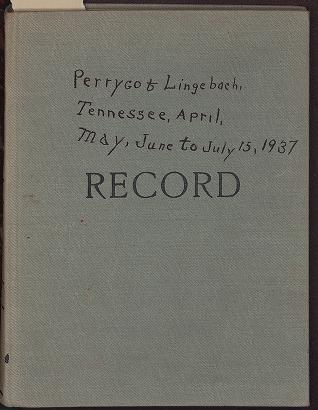 Perrygo & Lingebach,
Tennessee, April,
May, June to July 15, 1937
RECORD